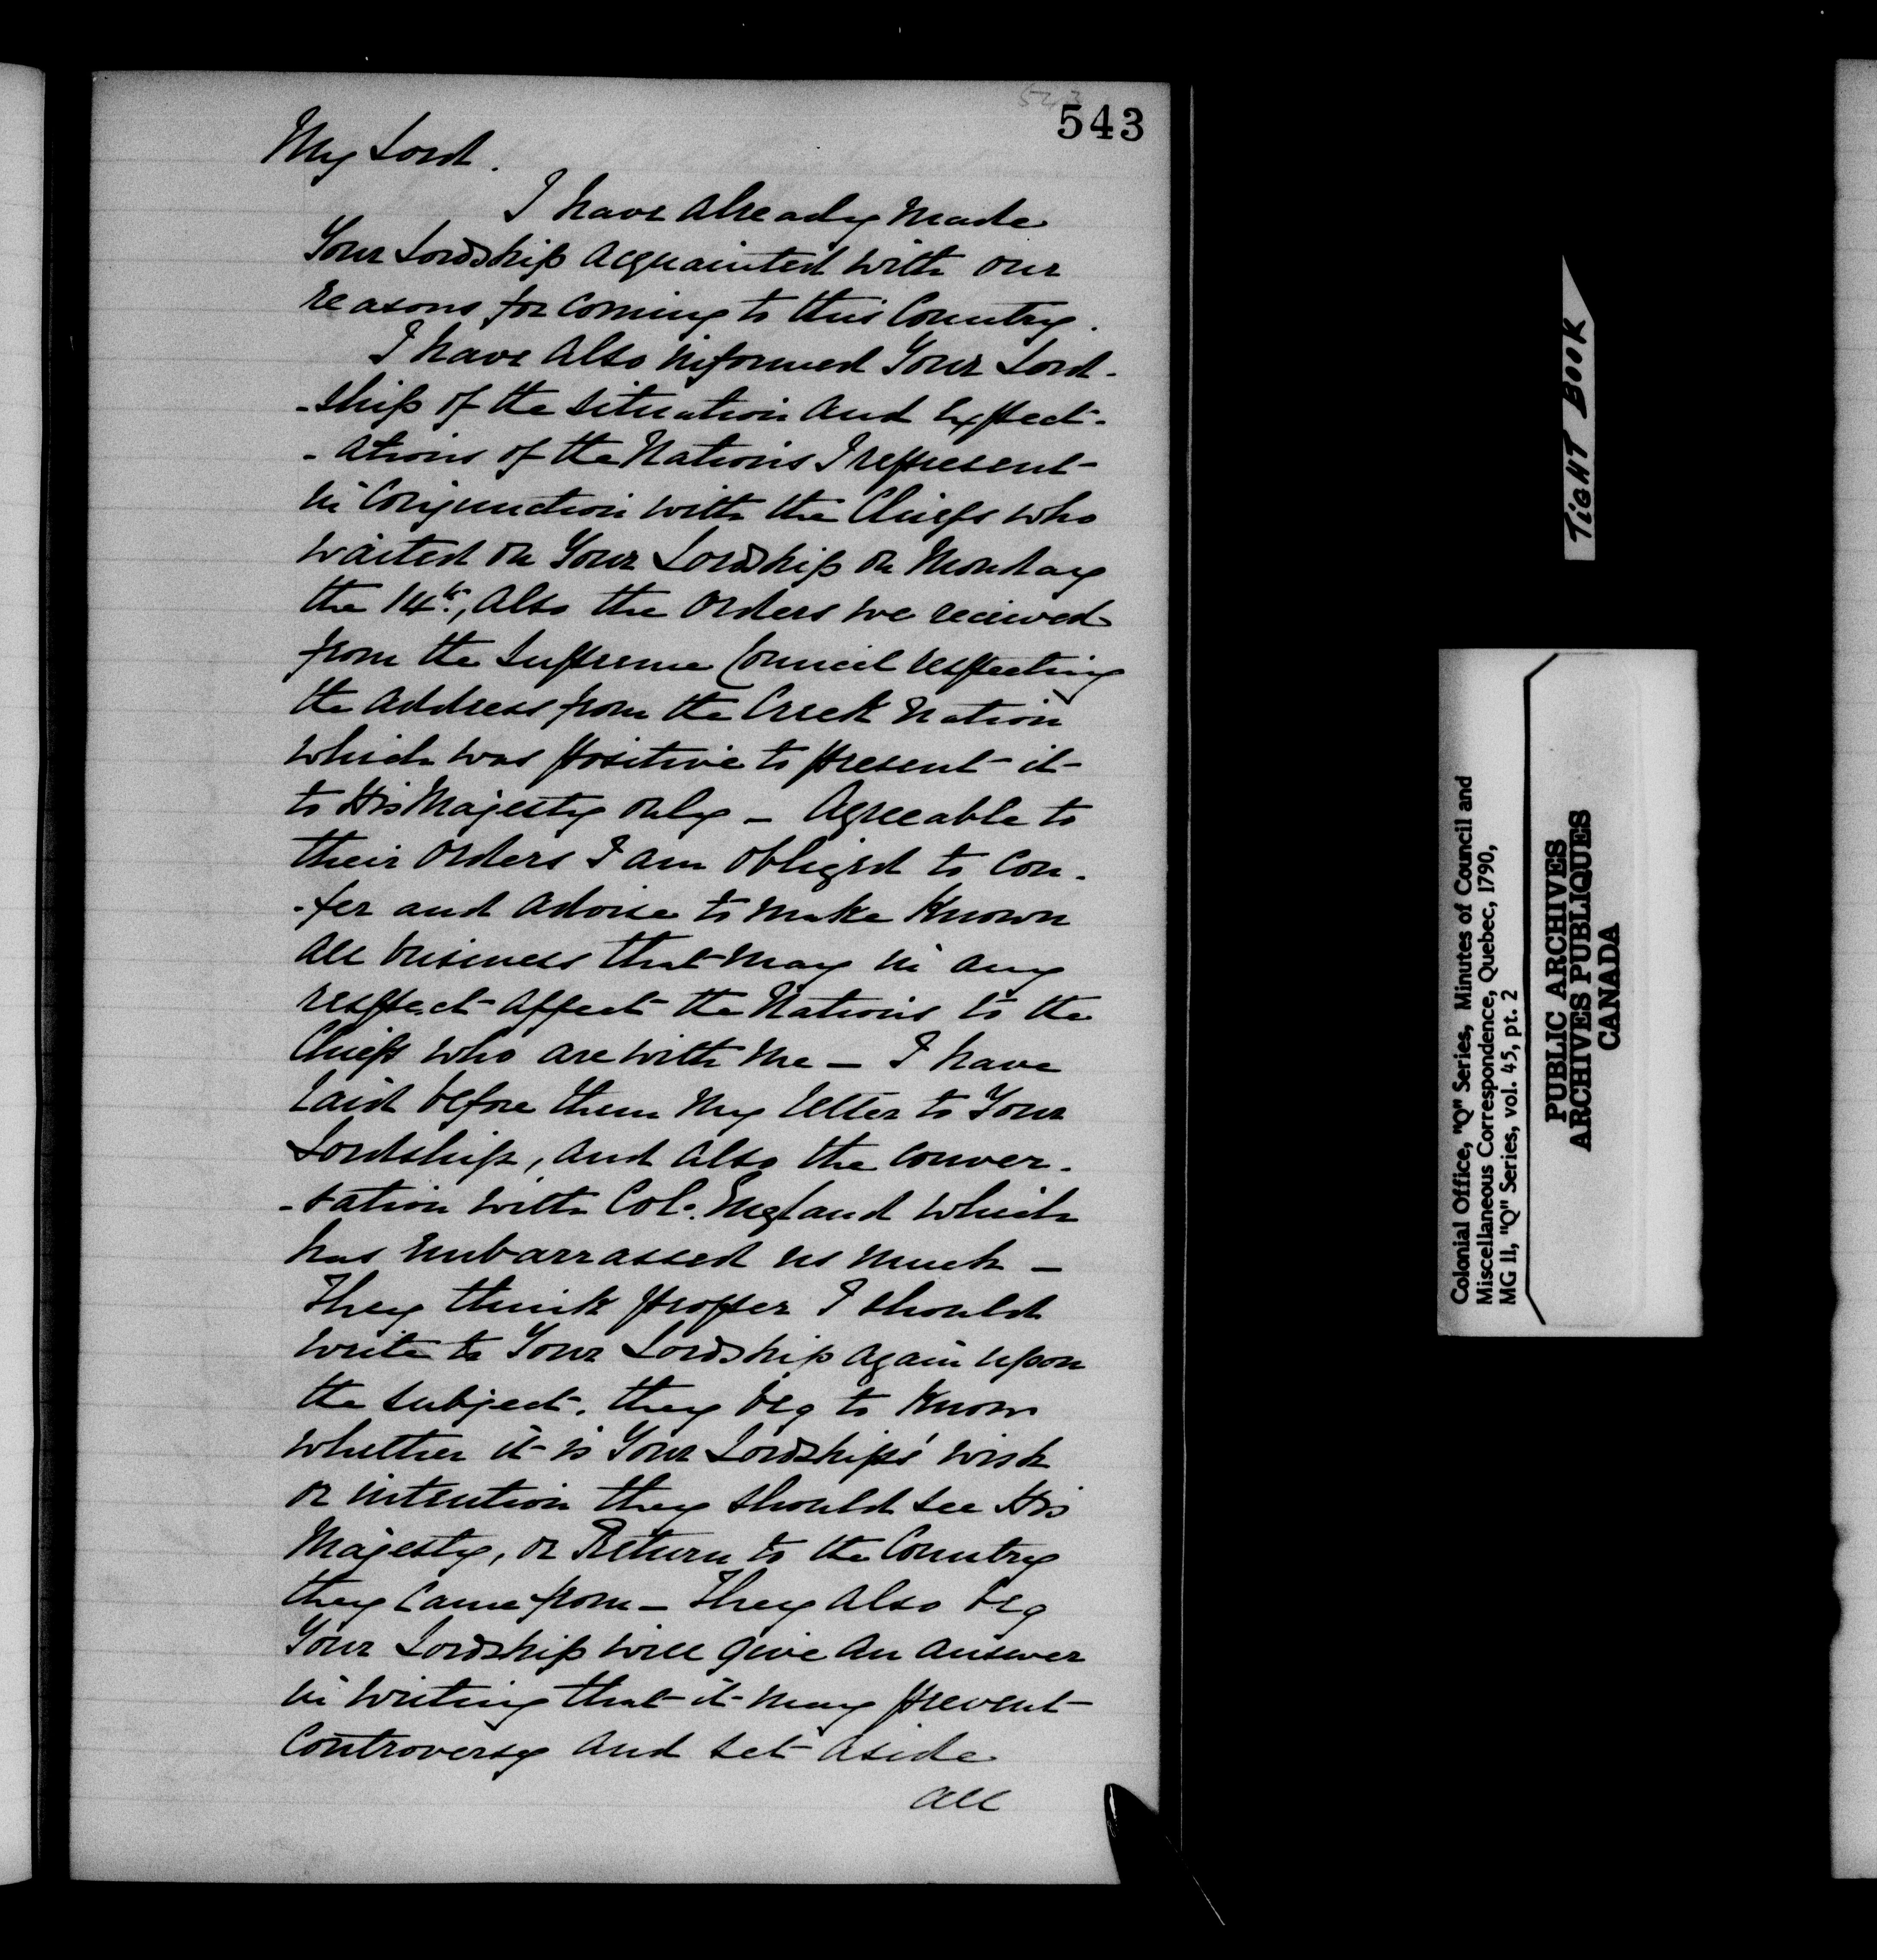 543
543
My Lord.
I have already made
Your Lordship acquainted with our
reasons for coming to this Country.
I have also informed Your Lord-
-ship of the situation and Expect-
-ations of the Nations I represent
in Conjunction with the Chiefs who
waited on Your Lordship on Monday
the 14th, also the Orders we recieved
from the Supreme Council respecting
the address from the Creek Nation
which was positive to present it
to His Majesty only – Agreeable to
their Orders I am obliged to con-
-fer and advise to make known
all business that may in any
respect affect the Nations to the
Chiefs who are with me – I have
laid before them my letter to Your
Lordship, and also the conver-
-sation with Col. England which
has embarrassed us much –
They think proper I should
write to Your Lordship again upon
the subject. they beg to know
whether it is Your Lordships' wish
or intention they should see His
Majesty, or Return to the Country
they came from – They also beg
Your Lordship will give an answer
in writing that it may prevent
Controversy and set aside
all
TIGHT BOOK
Colonial Office, "Q" Series, Minutes of Council and
Miscellaneous Correspondence, Quebec, 1790,
MG 11, "Q" Series, vol. 45, pt. 2
PUBLIC ARCHIVES
ARCHIVES PUBLIQUES
CANADA